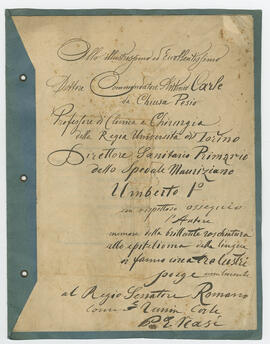 All' illustrissimo ed Eccellentissimo
Dottore Commendatore Antonio Carle
da Chiusa Pesio
Professore di Clinica e Chirurgia
della Regia Università di Torino
Direttore Sanitario Primario
dello Spedale Mauriziano
Umberto I°
con rispettoso ossequio
l'Autore
memore della brillante
alla epitelioma della lingua
or fanno lustri
porge
al Regio Senatore Romano
Carle